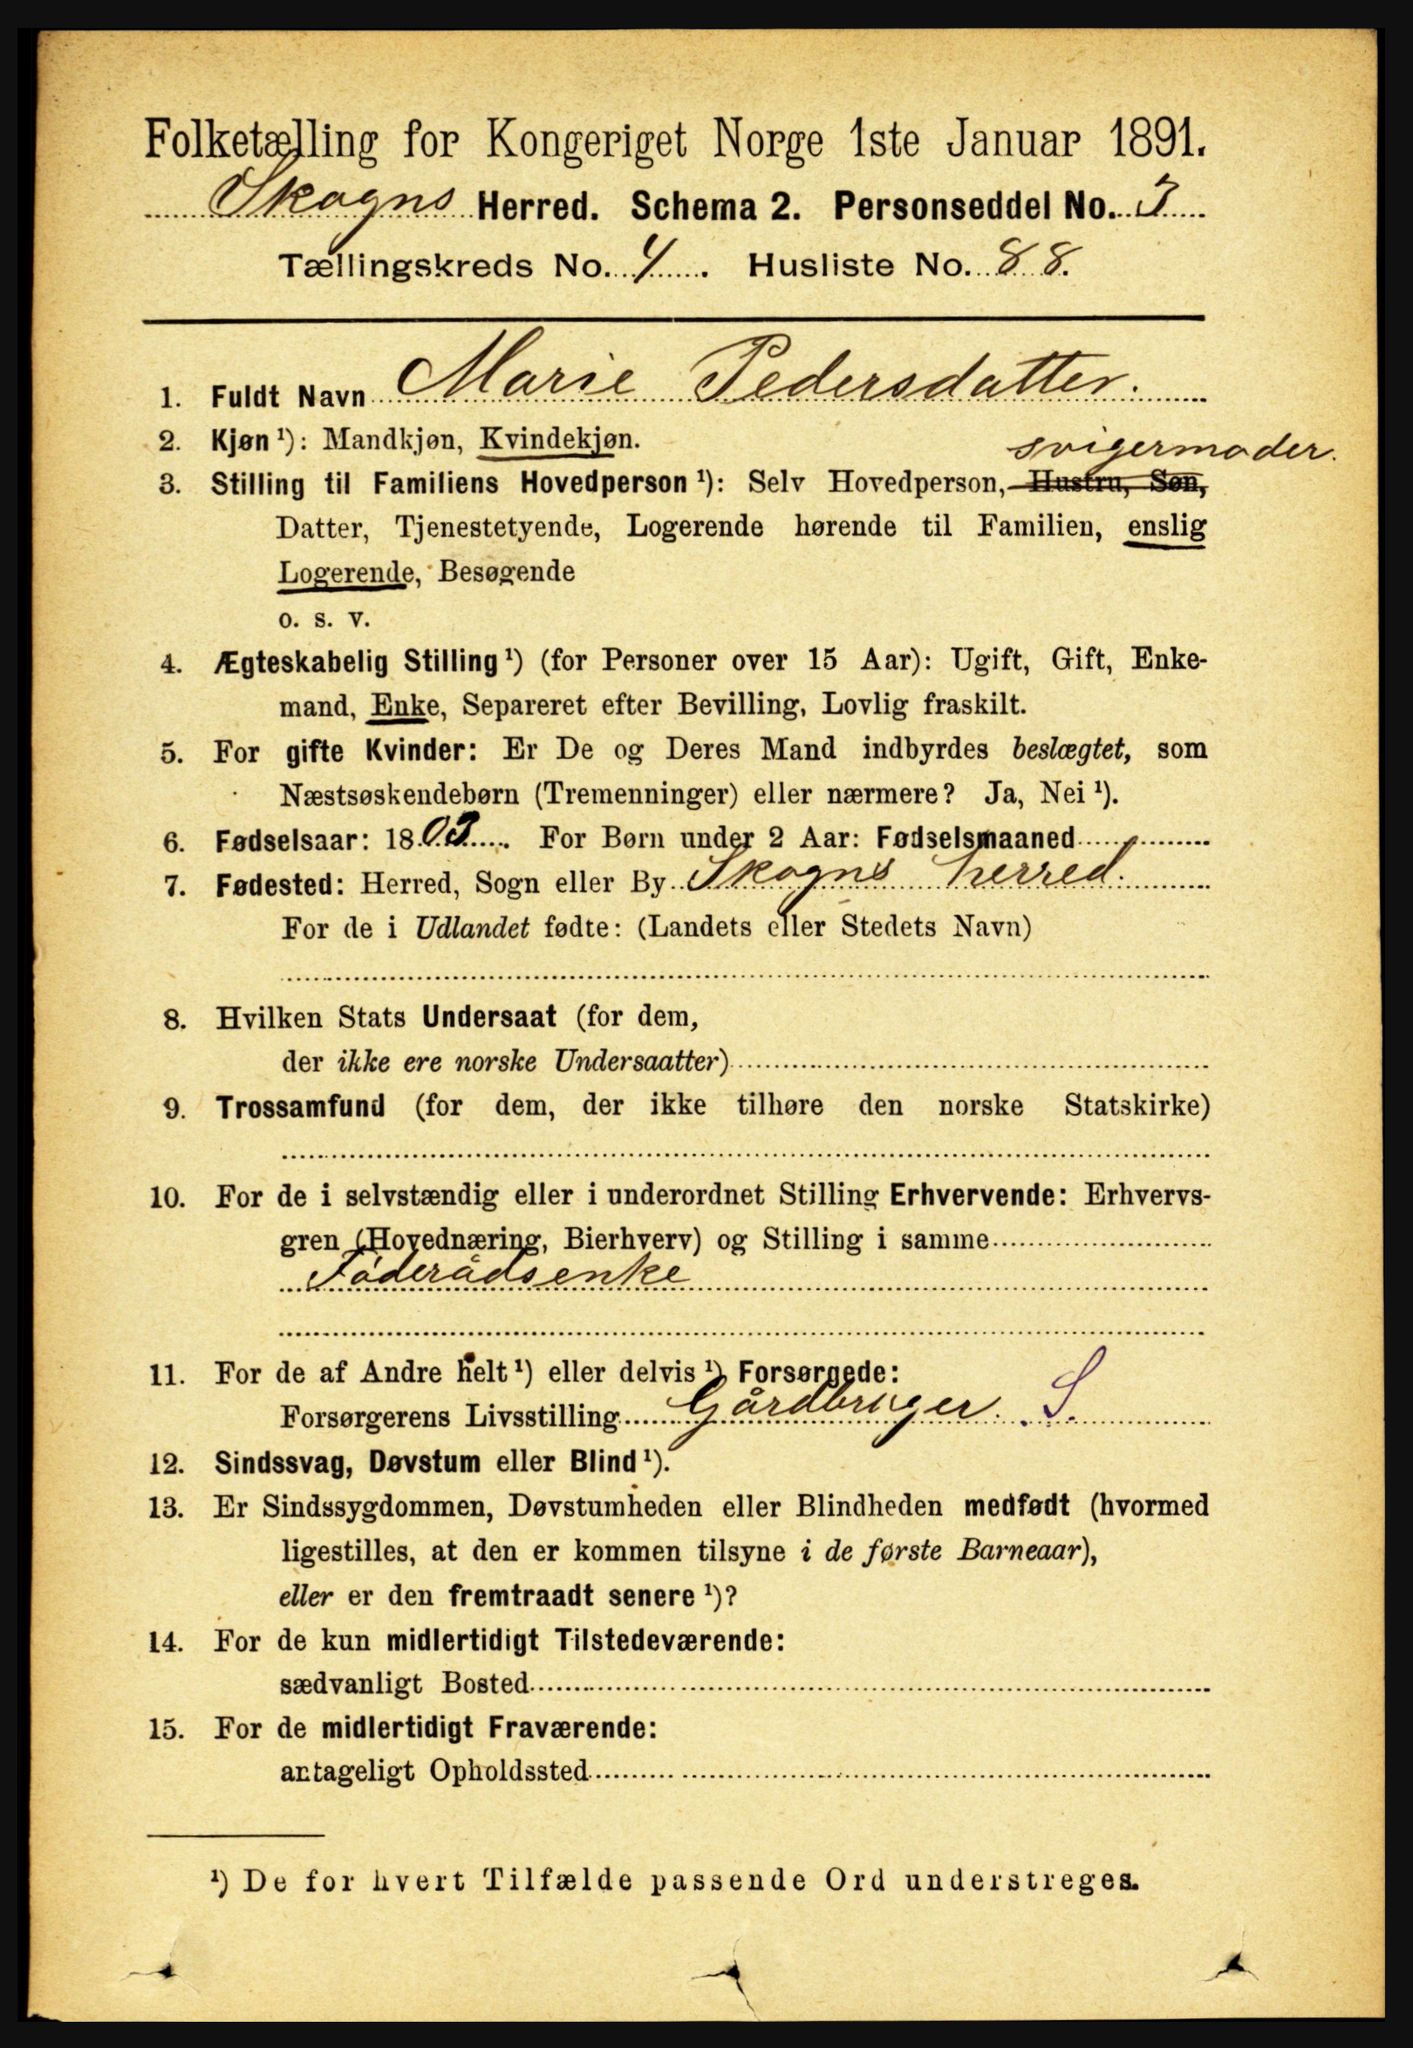 Folketælling for Kongeriget Norge 1ste Januar 1891.
Skogns Herred. Schema 2. Personseddel No. 3
Tællingskreds No. 4. Husliste No. 88.
1. Fuldt Navn Marie Pedersdatter.
2. Kjøn ¹): Mandkjøn, Kvindekjøn.
svigermoder.
3. Stilling til Familiens Hovedperson ¹): Selv Hovedperson, Hustru, Søn,
Datter, Tjenestetyende, Logerende hørende til Familien, enslig
Logerende, Besøgende
o. s. v.
4. Ægteskabelig Stilling ¹) (for Personer over 15 Aar): Ugift, Gift, Enke-
mand, Enke, Separeret efter Bevilling, Lovlig fraskilt.
5. For gifte Kvinder: Er De og Deres Mand indbyrdes beslægtet, som
Næstsøskendebørn (Tremenninger) eller nærmere? Ja, Nei ¹).
6. Fødselsaar: 1803. For Børn under 2 Aar: Fødselsmaaned
7. Fødested: Herred, Sogn eller By Skogns herred.
For de i Udlandet fødte: (Landets eller Stedets Navn)
8. Hvilken Stats Undersaat (for dem,
der ikke ere norske Undersaatter)
9. Trossamfund (for dem, der ikke tilhøre den norske Statskirke)
10. For de i selvstændig eller i underordnet Stilling Erhvervende: Erhvervs-
gren (Hovednæring, Bierhverv) og Stilling i samme
Føderådsenke
11. For de af Andre helt ¹) eller delvis ¹) Forsørgede:
Forsørgerens Livsstilling Gårdbruger. S.
12. Sindssvag, Døvstum eller Blind ¹).
13. Er Sindssygdommen, Døvstumheden eller Blindheden medfødt (hvormed
ligestilles, at den er kommen tilsyne i de første Barneaar),
eller er den fremtraadt senere ¹)?
14. For de kun midlertidigt Tilstedeværende:
sædvanligt Bosted
15. For de midlertidigt Fraværende:
antageligt Opholdssted
¹) De for hvert Tilfælde passende Ord understreges.